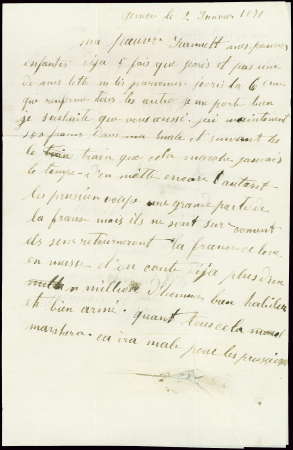 le 2 Janvier 1871
ma pauvre Jeannett mes pauvres
enfants déja 5 fois que jecris et pas une
de mes lette ni ls parvenues jecris la 6 eme
que renferme tous les autre je me porte bien
je souhaite que vous aussi jai maintenant
100 francs dans ma male et suivant
le train que cela marche jaurais
le temps d'en mettre encore autant
les prussien ocupe une grande partie de
la franse mais ils ne sont sur coment
ils sens retourneront la franse se leve
en masse d'on conte déja plus d'un
million d'hommes bien habiller
et bien armé quant tous cela
marchera ca ira male pour les prussiens